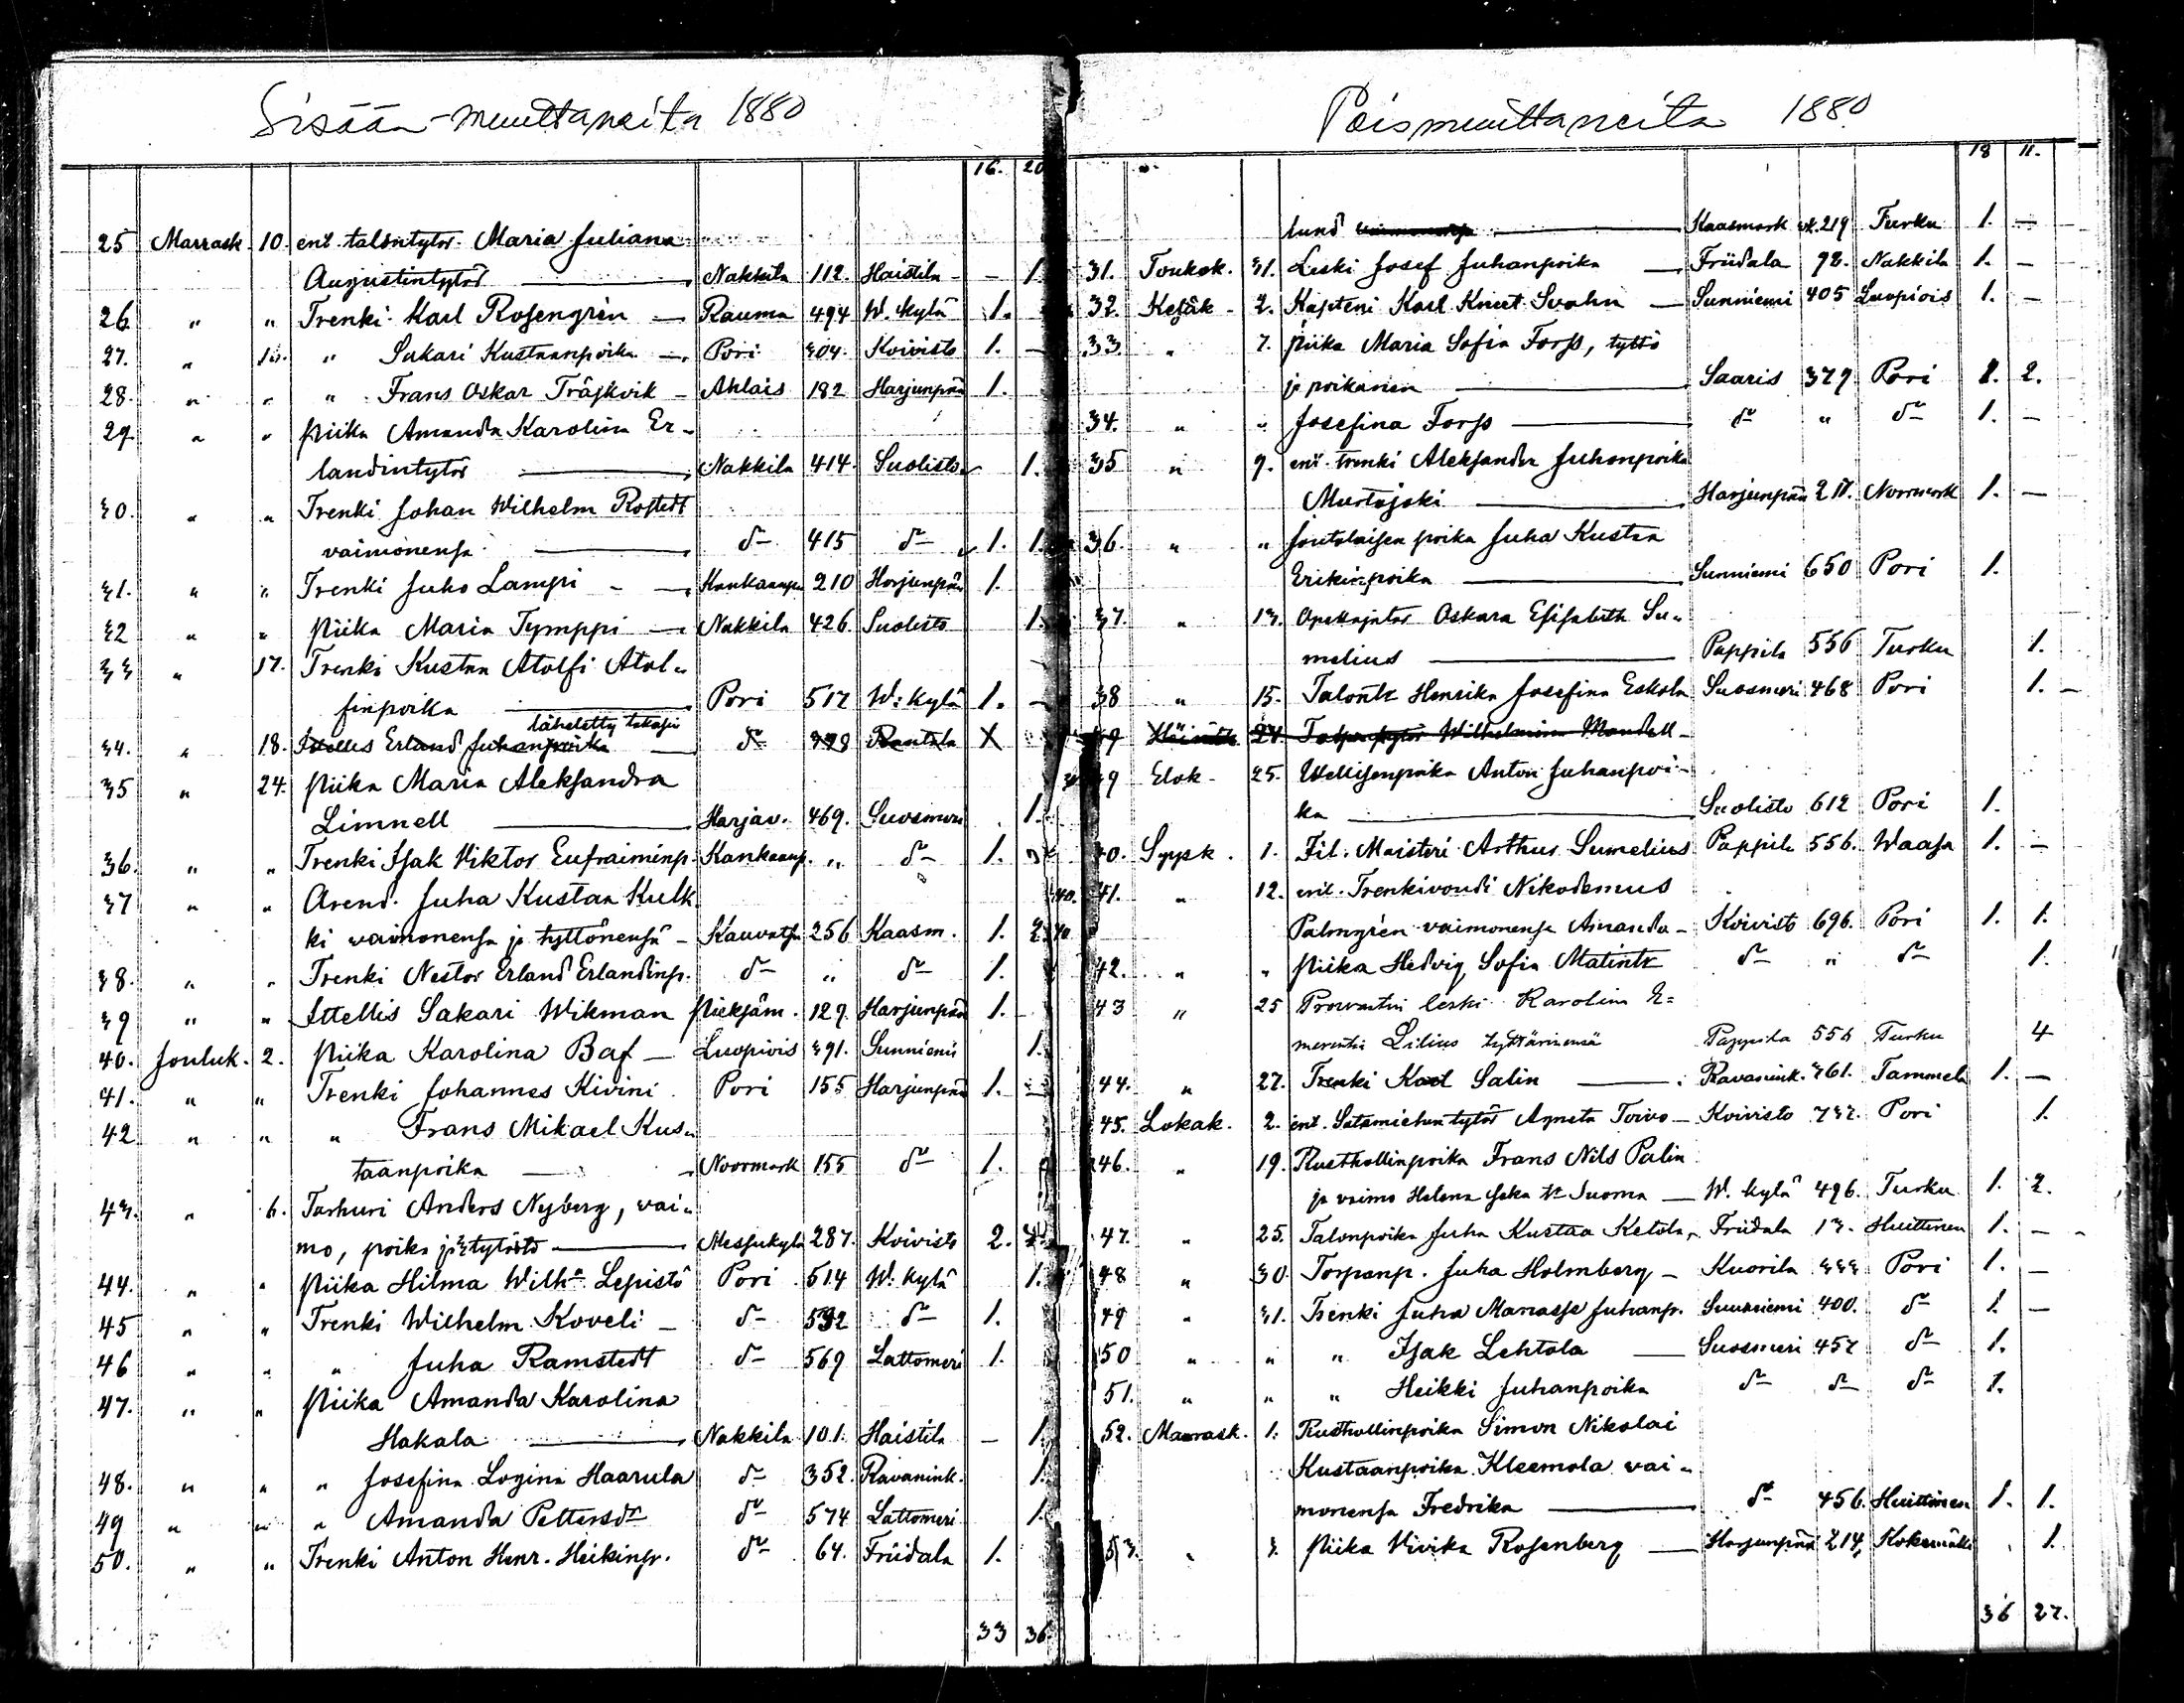 Sisään-muuttaneita 1880
16. 20
25 Marrask. 10. ent. talontytör Maria Juliana
Augustintytör — Nakkila 112. Haistila - — 1.
26 " " Trenki Karl Rosengrén — Rauma 494 W. kylä 1.
27. " " Sakari Kustaanpoika — Pori 304. Koivisto 1. —
28. " " " Frans Oskar Träskvik - Ahlais 182 Harjunpää 1.
29 " " Piika Amanda Karolina Er-
landintytör — Nakkila 414. Suolisto 1.
30. " " Trenki Johan Wilhelm Rostedt
vaimonensa — do 415 do 1. 1.
31. " " Trenki Juho Lampi - Kankaanpää 210 Harjunpää 1.
32 " " Piika Maria Tymppi — Nakkila 426. Suolisto 1.
33 " 17. Trenki Kustaa Atolfi Atol-
finpoika — Pori 517 W: kylä 1. -
lähetetty takasin
34. " 18. Ittellis Erland Juhanpoika — do 398 Rantala X
35 " 24. Piika Maria Aleksandra
Limnell — Harjav. 469. Suosmeri 1.
36. " " Trenki Isak Viktor Eufraiminp. Kankaanp. " do 1.
37 " " Arend. Juha Kustaa Kulk
ki vaimonensa ja tyttönensä - Kauvatsa 256 Kaasm. 1. 2
38. " " Trenki Nestor Erland Erlandinp. do " do 1.
39 " " Ittellis Sakari Wikman Pieksäm. 129. Harjunpää 1.
40. Jouluk. 2. Piika Karolina Baf — Luvpiois 391. Sunniemi 1.
41. " " Trenki Johannes Kivini Pori 155 Harjunpää 1. —
42 " " " Frans Mikael Kus-
taanpoika — Noormark 155 do 1.
43. " 6. Tarhuri Anders Nyberg, vai-
mo, poika ja 3 tytöstö — Messukylä 287. Koivisto 2.
44. " " Piika Hilma Wilha Lepistö Pori 514 W: kylä 1.
45 " " Trenki Wilhelm Koveli — do 592 do 1.
46 " " " Juha Ramstedt do 569 Lattomeri 1.
47. " " Piika Amanda Karolina
Hakala — Nakkila 101. Haistila — 1.
48. " " " Josefina Logina Haarula do 352. Ravanink. 1.
49 " " " Amanda Pettersdr do 574 Lattomeri 1.
50. " " Trenki Anton Henr. Heikinp. do 64. Friidala 1.
33 36.
Poismuuttaneita 1880
18 11.
lund — Kaasmark 219 Turku 1. —
31. Toukok. 31. Leski Josef Juhanpoika — Friidala 98. Nakkila 1. —
32. Kesäk - 2. Kapteni Karl Knut Svahn — Sunniemi 405 Luvpiois 1. —
33. " 7. Piika Maria Sofia Forss, tyttö
ja poikanen — Saaris 379 Pori 1. 2.
34. " " Josefina Forss — do " do 1. —
35 " 9. ent. trenki Aleksander Juhonpoika
Mustajoki — Harjunpää 217. Noormark 1. —
36. " " Joutolaisen poika Juha Kustaa
Erikinpoika — Sunniemi 650 Pori 1.
37. " 13. Opettajatar Oskara Elisabeth Su-
melius — Pappila 556 Turku 1.
38 " 15. Talontr Henrika Josefina Eskola Suosmeri 468 Pori 1. —
39 Heinäk 24 Wilhelmina Mandell -
39 Elok - 25. Ittellisenpoika Anton Juhanpoi-
ka — Suolisto 612 Pori 1.
40. Syysk. 1. Fil. Maisteri Arthur Sumelius Pappila 556. Waasa 1. —
41. " 12. ent. Trenkivouti Nikodemus
Palmgrén vaimonensa Amanda - Koivisto 696. Pori 1. 1.
42. " " Piika Hedvig Sofia Matintr do " do 1.
43 " 25 Provastin leski Karolina E=
merentia Lilius tyttärinensä Pappila 556 Turku 4
44. " 27. Trenki Karl Salin — Ravanink. 361. Tammela 1. —
45. Lokak. 2. ent. Satamiehen tytör Agneta Toivo — Koivisto 732. Pori 1.
46. " 19. Rusthollinpoika Frans Nils Palin
ja vaimo Helena — W. kylä 496. Turku 1. 2.
47. " 25. Talonpoika Juha Kustaa Ketola, Friidala 13. Huittinen 1. —
48 " 30. Torpanp. Juha Holmberg — Kuorila 333 Pori 1. —
49 " 31. Trenki Juha Manasse Juhanp. Sunniemi 400. do 1 —
50 " " " Isak Lehtola — Suosmeri 457 do 1.
51. " " " Heikki Juhanpoika do do do 1.
52. Marrask. 1. Rusthollinpoika Simon Nikolai
Kustaanpoika Kleemola vai-
monensa Fredrika — do 456. Huittinen 1. 1.
53. " 3. Piika Vivika Rosenberg — Harjunpää 214. Kokemäki 1.
36 27.